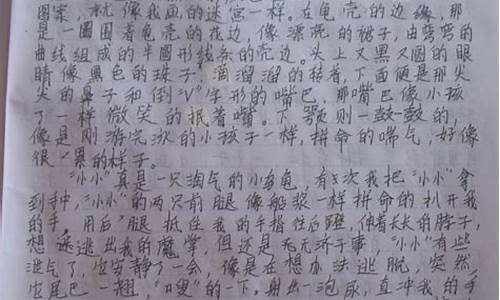 图案，就像我画的迷宫一样。在龟壳的边缘，那
是一圈围着龟壳的花边，像漂亮的裙子，由弯弯的
曲线组成的半圆形线条的壳边。头上又黑又圆的眼
睛像黑色的珠子，滴溜溜的转着，下面便是那尖
尖的鼻子和倒“V”字形的嘴巴，那嘴巴像小孩
了一样微笑的抿着嘴。下颚则一鼓一鼓的，
像是刚游完泳的小孩子一样，拼命的喘气，好像
很累的样子。
“小小”真是一只淘气的小乌龟，有一次我把“小小”拿
到手中，“小小”的两只前腿像船桨一样拼命的扒开我
的手，用后腿抵住我的手指往后蹬，伸着长长的脖子，
想逃出我的魔掌，但还是无无济于事，“小小”有些
泄气了，它安静了一会，像是在想办法逃脱，突然
它尾巴一翘，“嗖”的一下，射出一泡尿，直冲我的手